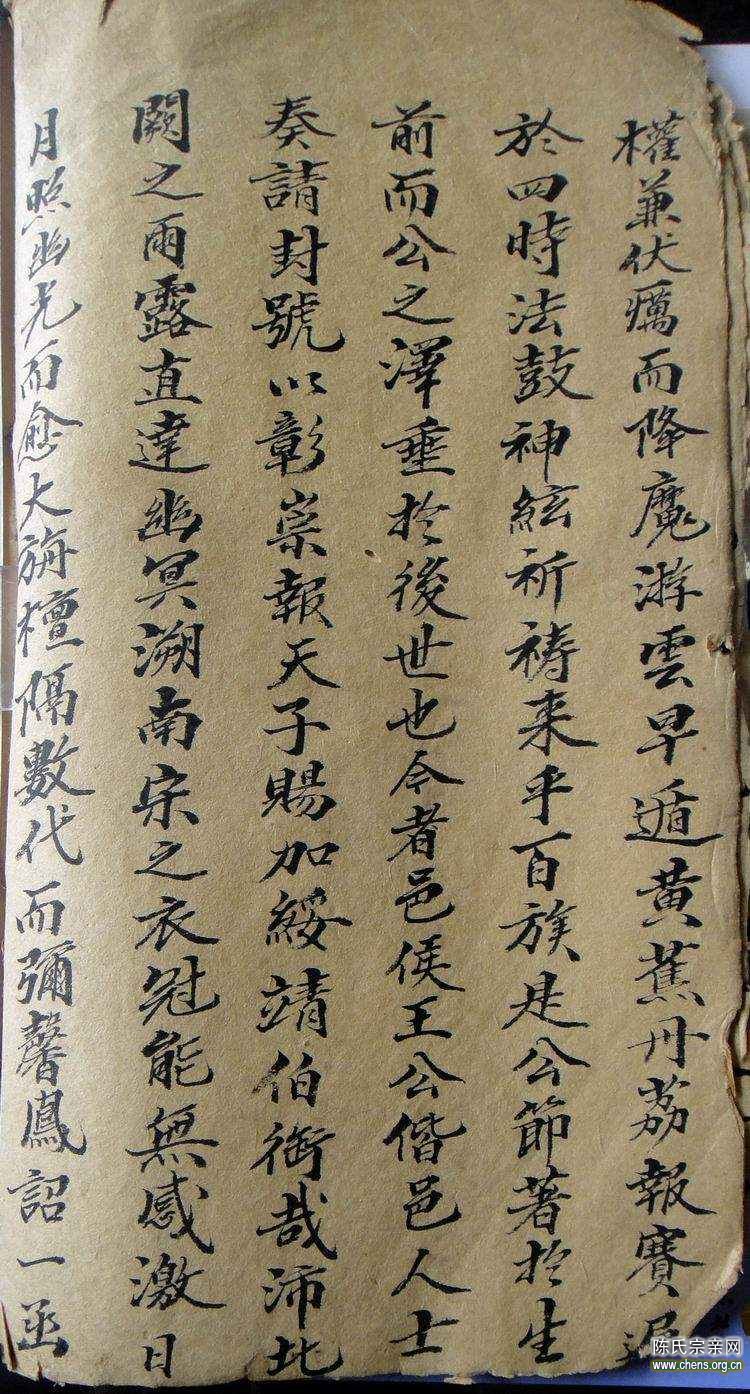 權兼伏癘而降魔游雲早遁黄蕉丹荔報賽
於四時法鼓神絃祈祷来乎百族是公節著於生
前而公之澤垂於後世也今者邑侯王公偕邑人士
奏請封號以彰崇報天子賜加綏靖伯銜哉沛北
闕之雨露直達幽冥溯南宋之衣冠能無感激日
月照幽光而愈大旃檀隔數代而彌馨鳳詔一
陈氏宗亲网
www.chens.org.cn